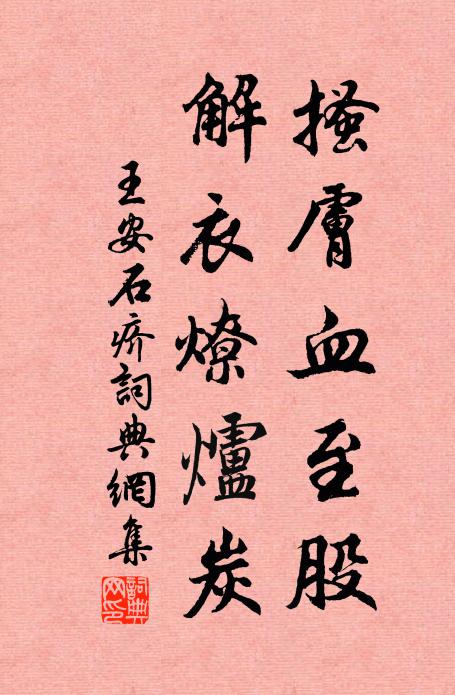 搔膚血至股
解衣燎爐炭
王安石疥詞典網集
詞典網印